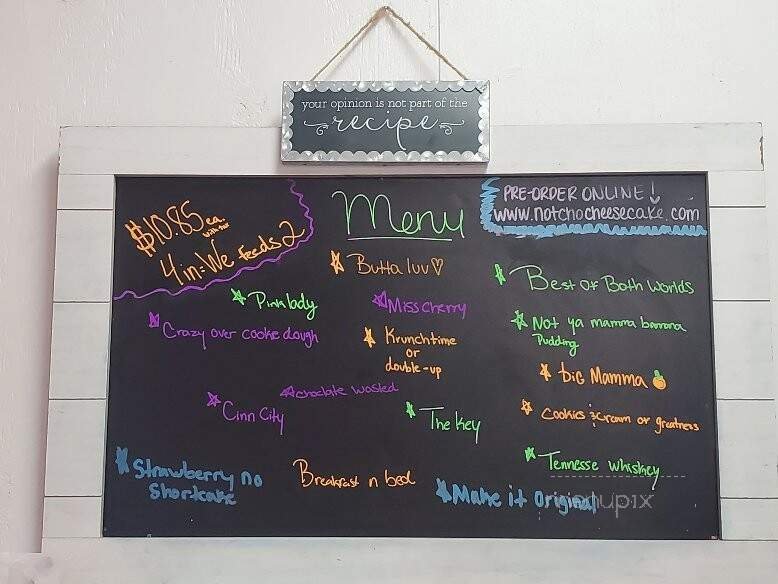 your opinion is not part of the
recipe
$10.85 ea.
with tax
4 in: We feeds 2
Menu
PRE-ORDER ONLINE!
www.notchocheesecake.com
Butta luv
Best of Both Worlds
Pink body
Miss cherry
Crazy over cookie dough
Krunchtime
or
double-up
Not ya mamma banana
Pudding
big Mamma
choclate wasted
Cinn City
The Key
Cookies & cream or greatness
Strawberry no
Shortcake
Breakfast n bed
Tennesse whiskey
Make it Original
menupix